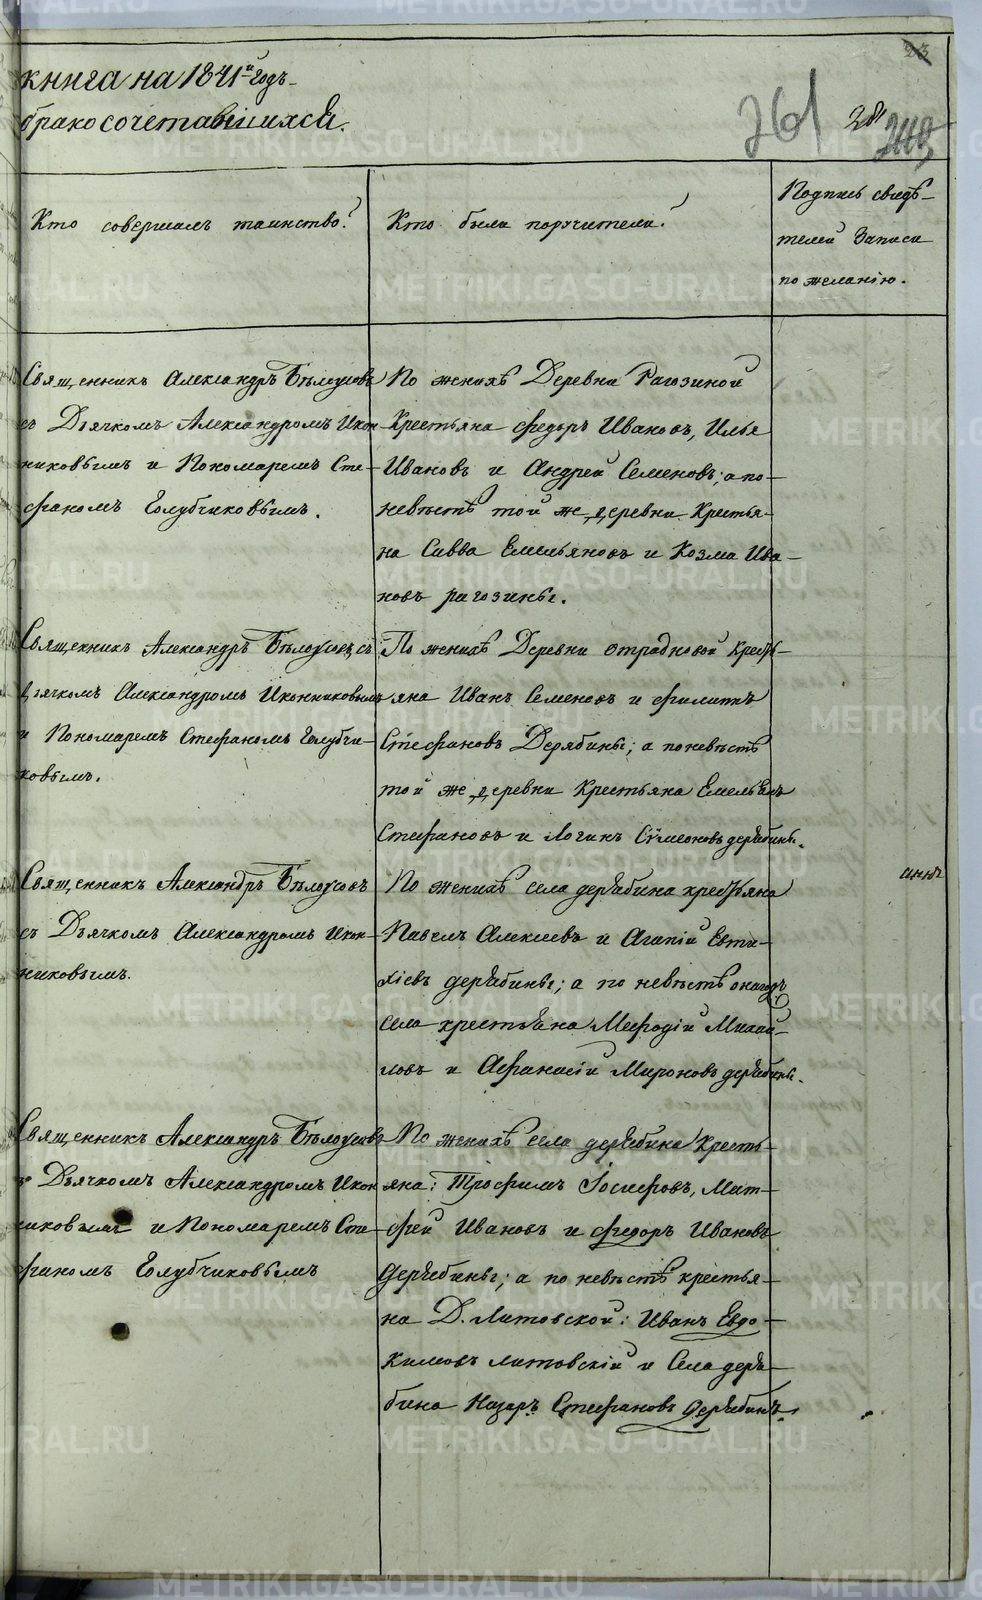 книга на 1841й годъ
бракосочетавшихся.
261
28
23
Кто совершалъ таинство?
Кто были поручители?
Подпись свидѣ-
телей Записи
по желанію.
Священникъ Александръ Бѣлоусовъ
съ Дьячкомъ Александромъ Икон-
никовымъ и Пономаремъ Сте-
фаномъ Голубчиковымъ.
По женихѣ Деревни Рагозиной
Крестьяна Федоръ Ивановъ, Илья
Ивановъ и Андрей Семеновъ; а по
невѣстѣ той же деревни Крестья-
на Савва Емельяновъ и Козма Ива-
новъ рагозины.
Священникъ Александръ Бѣлоусовъ, съ
Дьячкомъ Александромъ Иконниковымъ
и Пономаремъ Стефаномъ Голубчи-
ковымъ.
По женихѣ Деревни отрадновой Кресть-
яна Иванъ Семеновъ и Филиппъ
Стефановъ Дерябины; а по невѣстѣ
той же деревни Крестьяна Емельянъ
Стефановъ и Логинъ Сѵмеоновъ дерябины.
Священникъ Александръ Бѣлоусовъ
съ Дьячкомъ Александромъ Икон-
никовымъ.
По женихѣ села дерябина крестьяна
Павелъ Алексеевъ и Агапій Евти-
хіевъ дерябины; а по невѣстѣ онагожъ
села крестьяна Мефодій Михай-
ловъ и Афанасій Мироновъ дерябины.
Священникъ Александръ Бѣлоусовъ
съ Дьячкомъ Александромъ Икон-
никовымъ и Пономаремъ Сте-
фаномъ Голубчиковымъ
По женихѣ села дерябина Кресть-
яна: Трофимъ Іосифовъ, Мат-
фей Ивановъ и Федоръ Ивановъ
Дерябины; а по невѣстѣ крестья-
на Д. Литовской: Иванъ Евдо-
кимовъ литовскій и Села деря-
бина Назаръ Стефановъ дерябинъ.
METRIKI.GASO-URAL.RU